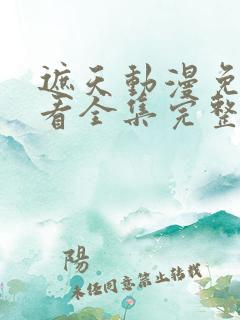 遮天動漫免
看全集完整
陽
未经同意禁止转载